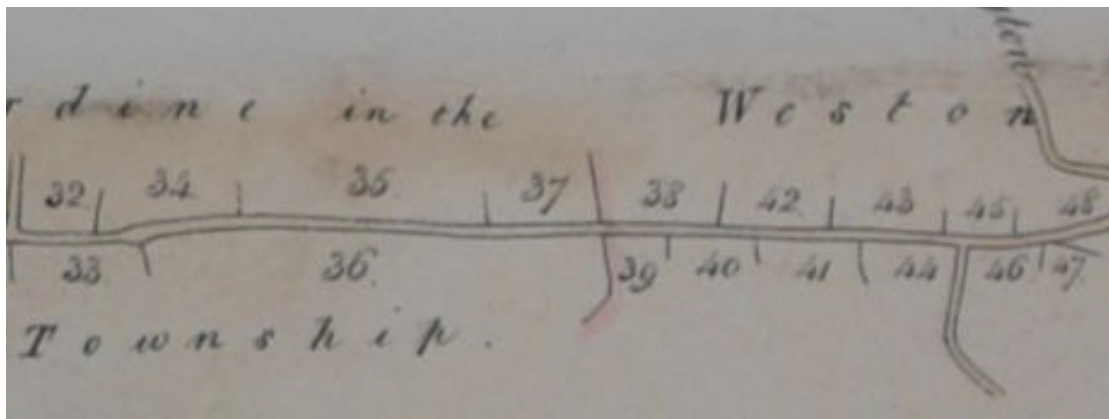 rdine in the Weston
32 34 35 37 38 42 43 45 48
33 36 39 40 41 44 46 47
Township.